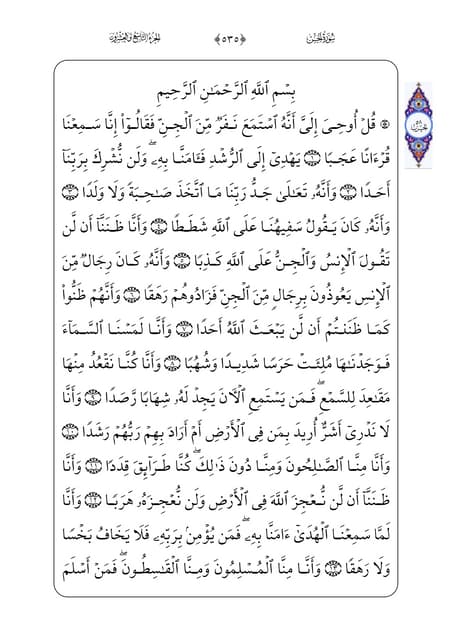 سُورَةُ الجِنّ ﴿٥٣٥﴾ الجزء التاسع والعشرون
بِسْمِ ٱللَّهِ ٱلرَّحْمَـٰنِ ٱلرَّحِيمِ
۞ قُلْ أُوحِىَ إِلَىَّ أَنَّهُ ٱسْتَمَعَ نَفَرٌ مِّنَ ٱلْجِنِّ فَقَالُوٓا۟ إِنَّا سَمِعْنَا
قُرْءَانًا عَجَبًا ۝١ يَهْدِىٓ إِلَى ٱلرُّشْدِ فَـَٔامَنَّا بِهِۦ ۖ وَلَن نُّشْرِكَ بِرَبِّنَآ
أَحَدًا ۝٢ وَأَنَّهُۥ تَعَـٰلَىٰ جَدُّ رَبِّنَا مَا ٱتَّخَذَ صَـٰحِبَةً وَلَا وَلَدًا ۝٣
وَأَنَّهُۥ كَانَ يَقُولُ سَفِيهُنَا عَلَى ٱللَّهِ شَطَطًا ۝٤ وَأَنَّا ظَنَنَّآ أَن لَّن
تَقُولَ ٱلْإِنسُ وَٱلْجِنُّ عَلَى ٱللَّهِ كَذِبًا ۝٥ وَأَنَّهُۥ كَانَ رِجَالٌ مِّنَ
ٱلْإِنسِ يَعُوذُونَ بِرِجَالٍ مِّنَ ٱلْجِنِّ فَزَادُوهُمْ رَهَقًا ۝٦ وَأَنَّهُمْ ظَنُّوا۟
كَمَا ظَنَنتُمْ أَن لَّن يَبْعَثَ ٱللَّهُ أَحَدًا ۝٧ وَأَنَّا لَمَسْنَا ٱلسَّمَآءَ
فَوَجَدْنَـٰهَا مُلِئَتْ حَرَسًا شَدِيدًا وَشُهُبًا ۝٨ وَأَنَّا كُنَّا نَقْعُدُ مِنْهَا
مَقَـٰعِدَ لِلسَّمْعِ ۖ فَمَن يَسْتَمِعِ ٱلْـَٔانَ يَجِدْ لَهُۥ شِهَابًا رَّصَدًا ۝٩ وَأَنَّا
لَا نَدْرِىٓ أَشَرٌّ أُرِيدَ بِمَن فِى ٱلْأَرْضِ أَمْ أَرَادَ بِهِمْ رَبُّهُمْ رَشَدًا ۝١٠
وَأَنَّا مِنَّا ٱلصَّـٰلِحُونَ وَمِنَّا دُونَ ذَٰلِكَ ۖ كُنَّا طَرَآئِقَ قِدَدًا ۝١١ وَأَنَّا
ظَنَنَّآ أَن لَّن نُّعْجِزَ ٱللَّهَ فِى ٱلْأَرْضِ وَلَن نُّعْجِزَهُۥ هَرَبًا ۝١٢ وَأَنَّا
لَمَّا سَمِعْنَا ٱلْهُدَىٰٓ ءَامَنَّا بِهِۦ ۖ فَمَن يُؤْمِنۢ بِرَبِّهِۦ فَلَا يَخَافُ بَخْسًا
وَلَا رَهَقًا ۝١٣ وَأَنَّا مِنَّا ٱلْمُسْلِمُونَ وَمِنَّا ٱلْقَـٰسِطُونَ ۖ فَمَنْ أَسْلَمَ